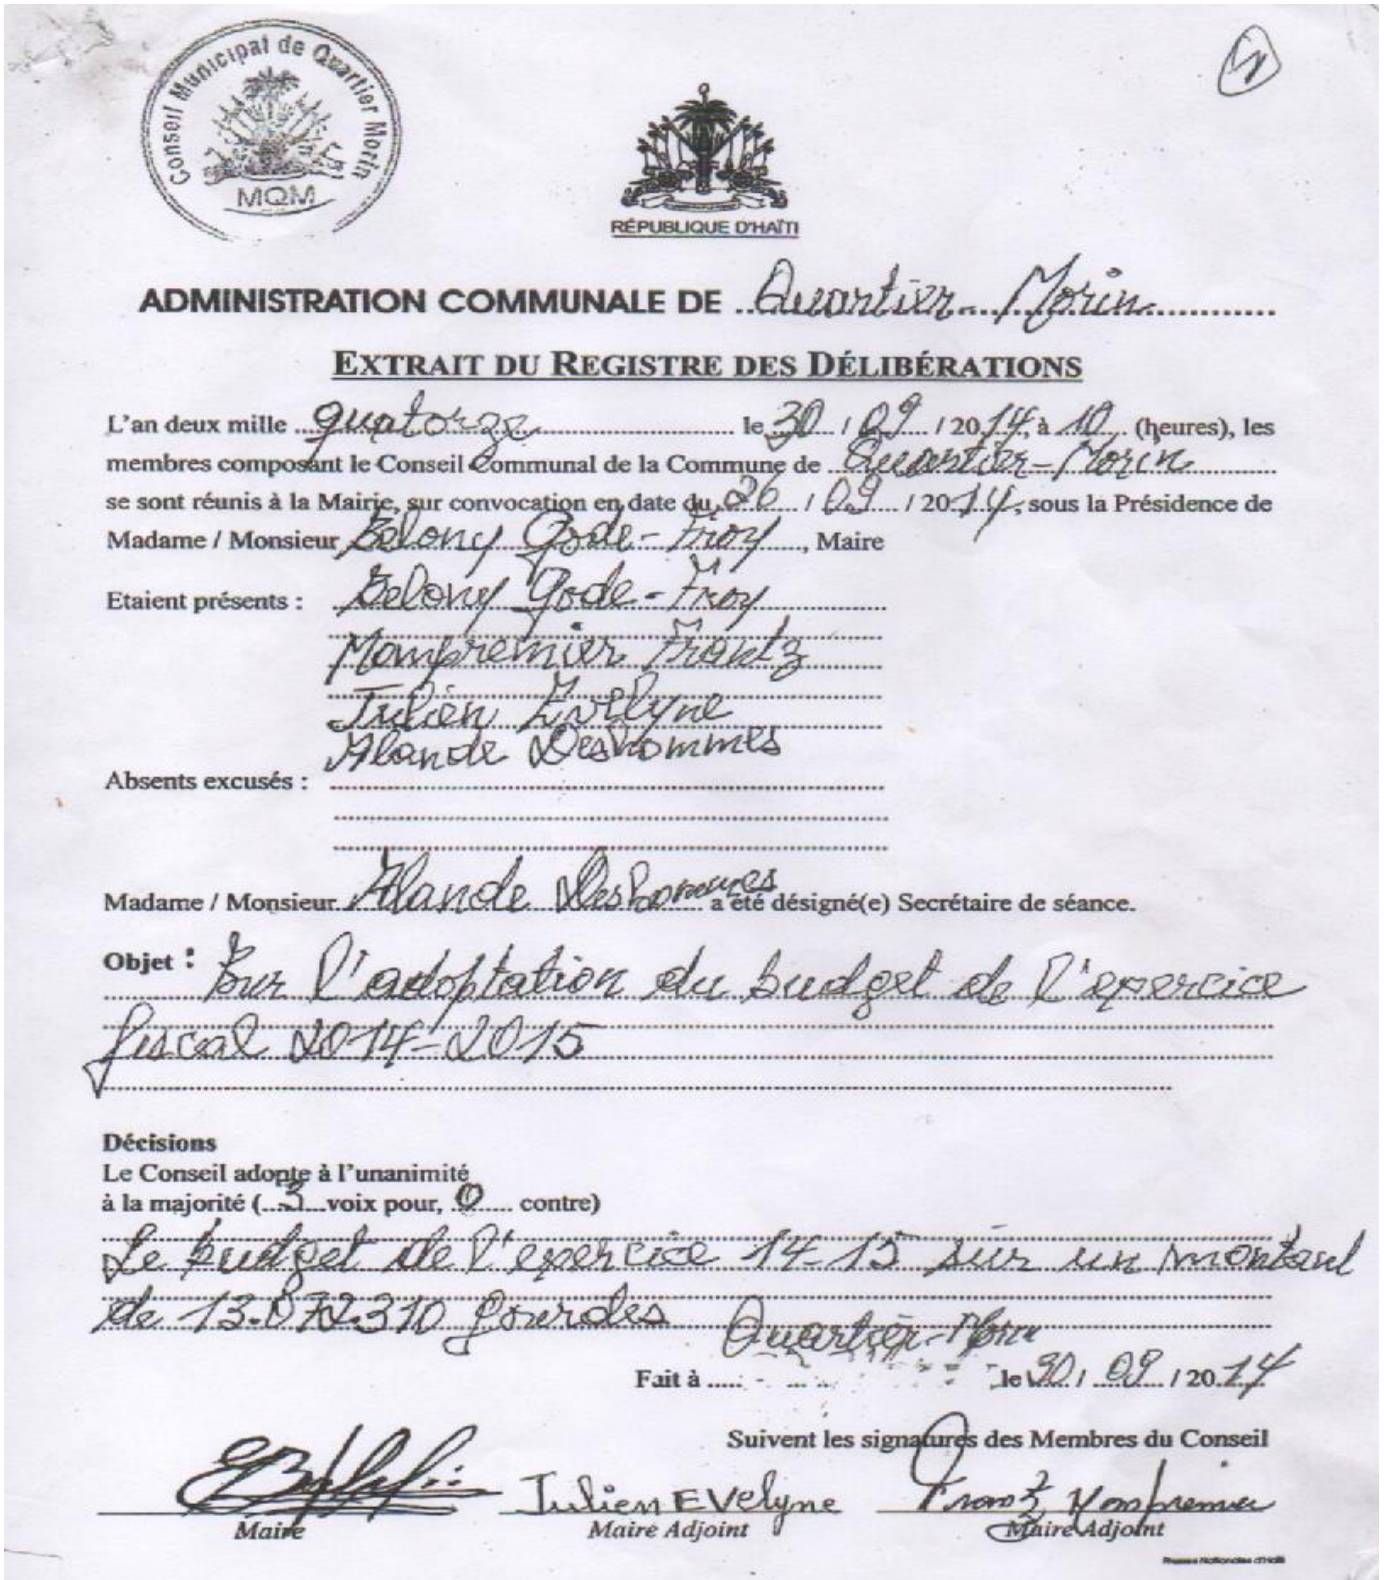 Conseil Municipal de Quartier Morin
MQM
RÉPUBLIQUE D'HAÏTI
ADMINISTRATION COMMUNALE DE Quartier-Morin
EXTRAIT DU REGISTRE DES DÉLIBÉRATIONS
L'an deux mille quatorze le 30 / 09 / 2014, à 10 (heures), les
membres composant le Conseil Communal de la Commune de Quartier-Morin
se sont réunis à la Mairie, sur convocation en date du 26 / 09 / 2014, sous la Présidence de
Madame / Monsieur Belony Gode-Froy, Maire
Etaient présents : Belony Gode-Froy
Mompremier Frantz
Julien Evelyne
Alande Deshommes
Absents excusés :
Madame / Monsieur Alande Deshommes a été désigné(e) Secrétaire de séance.
Objet : Pour l'adoptation du budget de l'exercice
fiscal 2014-2015
Décisions
Le Conseil adopte à l'unanimité
à la majorité (3 voix pour, 0 contre)
Le budget de l'exercice 14-15 sur un montant
de 13.072.310 gourdes
Quartier-Morin
Fait à le 30 / 09 / 2014
Suivent les signatures des Membres du Conseil
Julien EVelyne Frantz Mompremier
Maire Maire Adjoint Maire Adjoint
Presses Nationales d'Haïti